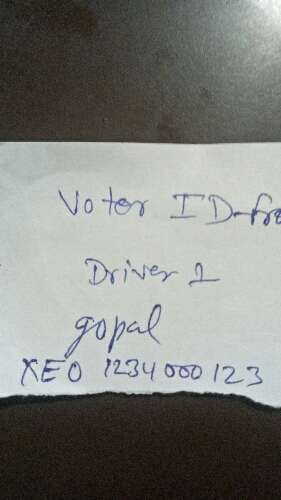 Voter ID-fro
Driver 1
gopal
XEO 1234000123